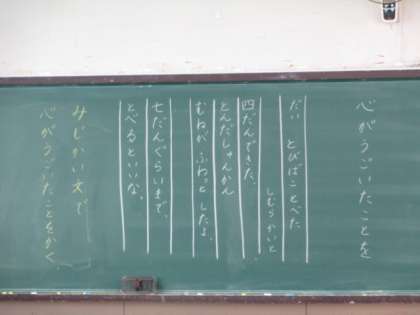 心がうごいたことを
だい とびばことべた
しむらかいと
四だんできた。
とんだしゅんかん
むねが ふわっと したよ。
七だんぐらいまで、
とべるといいな。
みじかい文で
心がうごいたことをかく。